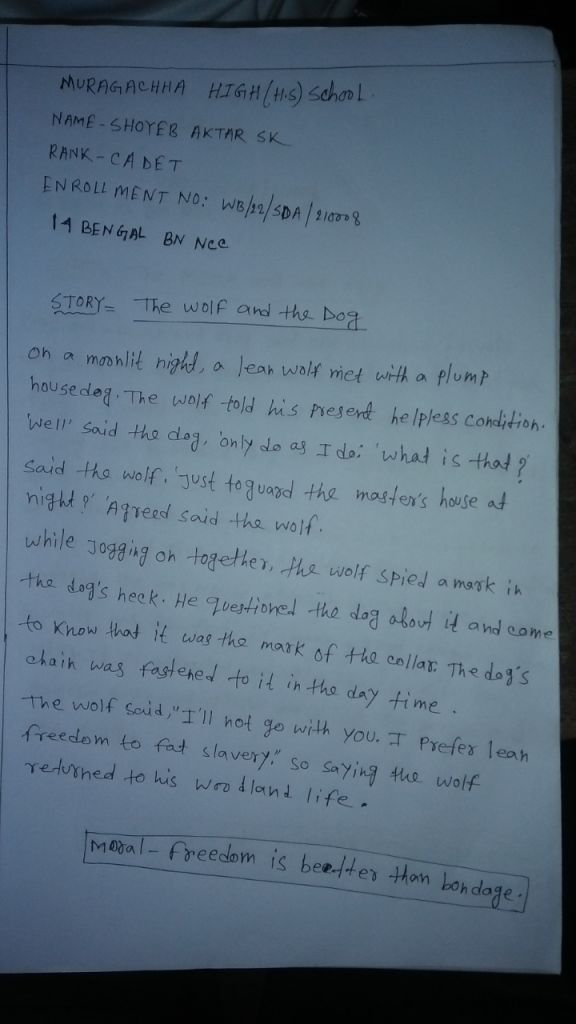 MURAGACHHA HIGH (H.S) School.
NAME - SHOYEB AKTAR SK
RANK - CADET
ENROLLMENT NO: WB/22/SDA/210008
14 BENGAL BN NCC
STORY= The wolf and the Dog
On a moonlit night, a lean wolf met with a plump
housedog. The wolf told his present helpless condition.
'Well' said the dog, 'only do as I do.' 'what is that?'
Said the wolf. 'Just to guard the master's house at
night?' 'Agreed said the wolf.
while Jogging on together, the wolf spied a mark in
the dog's neck. He questioned the dog about it and came
to know that it was the mark of the collar. The dog's
chain was fastened to it in the day time.
The wolf said, "I'll not go with you. I prefer lean
freedom to fat slavery." so saying the wolf
returned to his woodland life.
Moral - freedom is better than bondage.